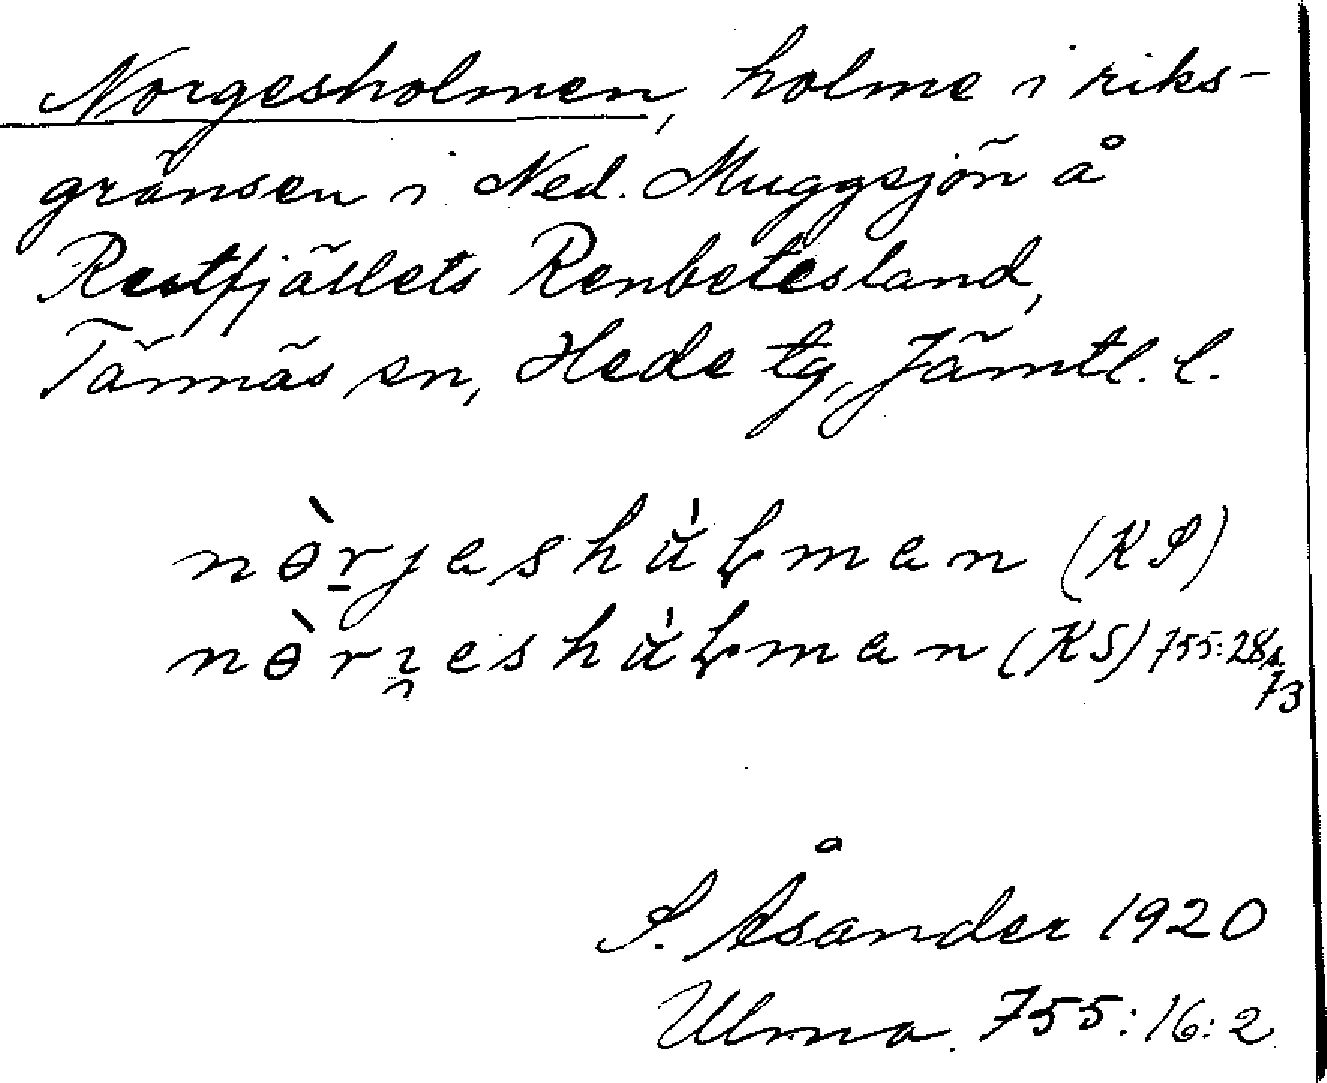 Norgesholmen, holme i riks-
gränsen i Ned. Muggsjön å
Rutfjällets Renbetesland,
Tännäs sn, Hede tg, Jämtl. l.
(KS)
(KS) 755:28
73
S. Åsander 1920
Ulma. 755:16:2